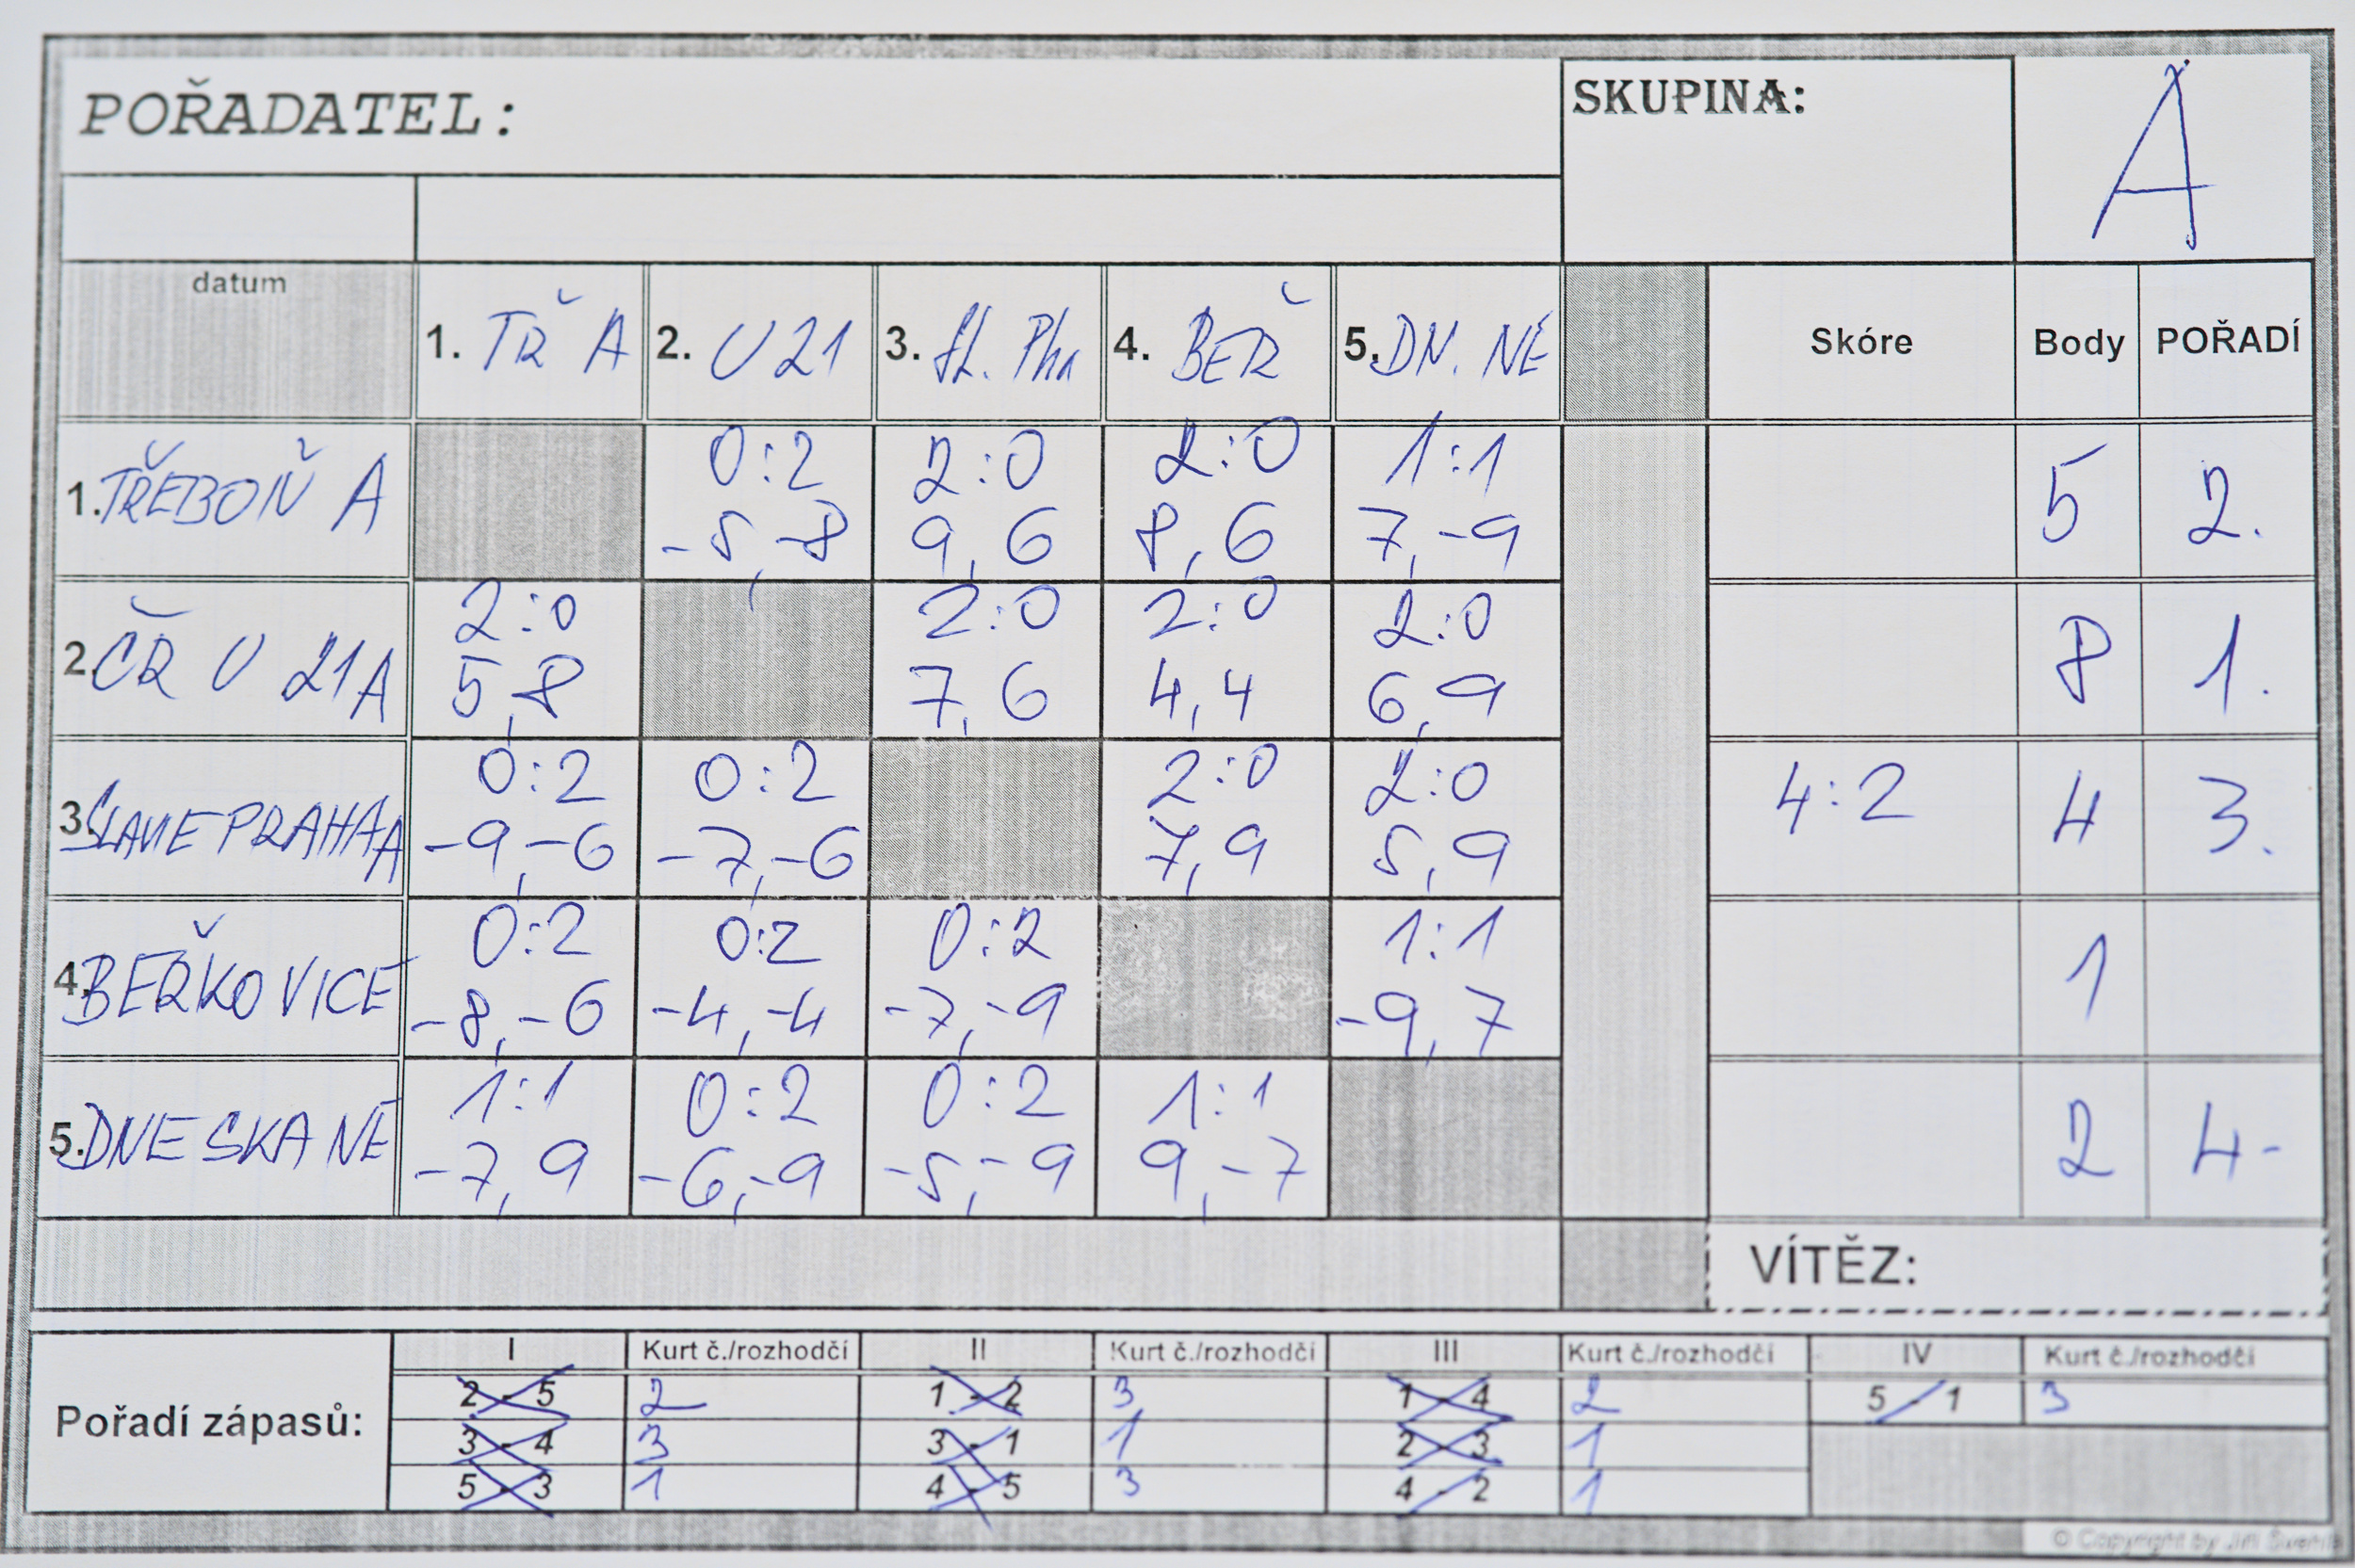 POŘADATEL:
SKUPINA: A
datum 1. TŘ A 2. U21 3. SL. Pha 4. BEŘ 5. DN. NE Skóre Body POŘADÍ
0:2 2:0 2:0 1:1
1. TŘEBOŇ A -5,-8 9,6 8,6 7,-9 5 2.
2:0 2:0 2:0 2:0
2. ČR U 21A 5,8 7,6 4,4 6,9 8 1.
0:2 0:2 2:0 2:0
3. SLAVIE PRAHA A -9,-6 -7,-6 7,9 5,9 4:2 4 3.
0:2 0:2 0:2 1:1
4. BEŘKOVICE -8,-6 -4,-4 -7,-9 -9,7 1
1:1 0:2 0:2 1:1
5. DNESKA NE -7,9 -6,-9 -5,-9 9,-7 2 4-
VÍTĚZ:
I Kurt č./rozhodčí II Kurt č./rozhodčí III Kurt č./rozhodčí IV Kurt č./rozhodčí
2 - 5 2 1 - 2 3 1 - 4 2 5 - 1 3
Pořadí zápasů: 3 - 4 3 3 - 1 1 2 - 3 1
5 - 3 1 4 - 5 3 4 - 2 1
© Copyright by Jiří